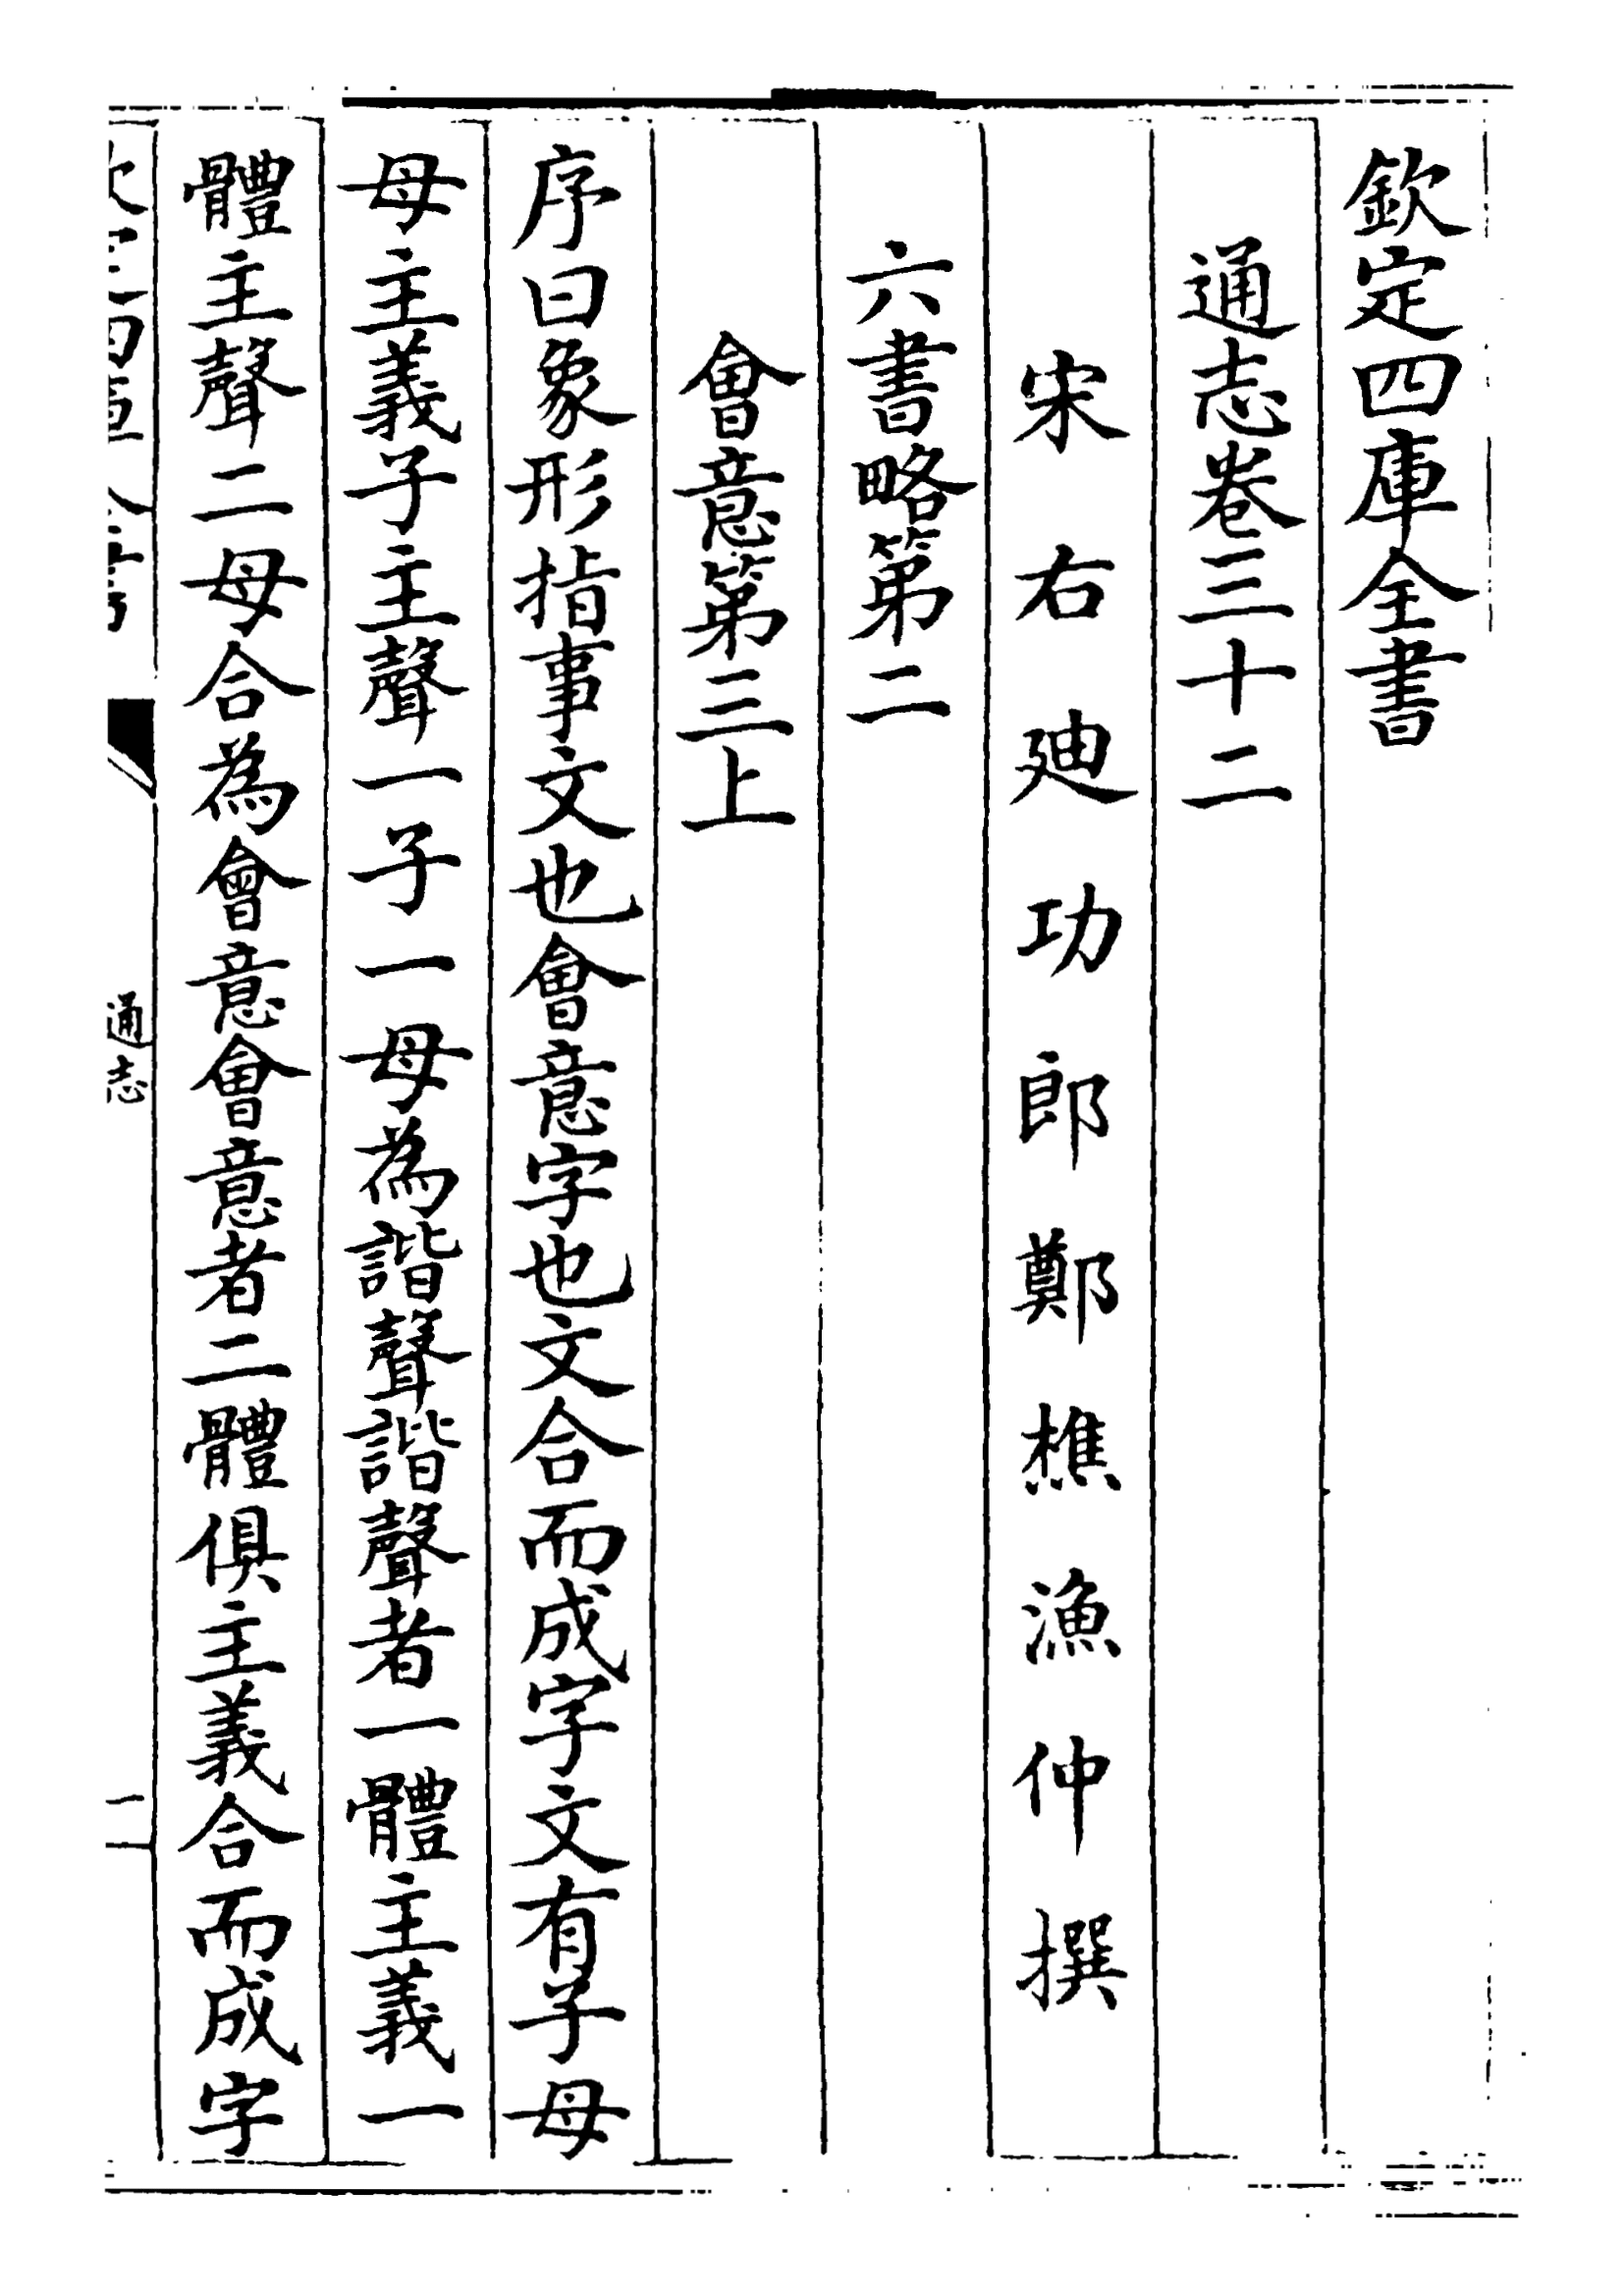 欽定四庫全書
通志卷三十二
宋右迪功郎鄭樵漁仲撰
六書略第二
會意第三上
序曰象形指事文也會意字也文合而成字文有子母
母主義子主聲一子一母為諧聲諧聲者一體主義一
體主聲二母合為會意會意者二體俱主義合而成字
通志